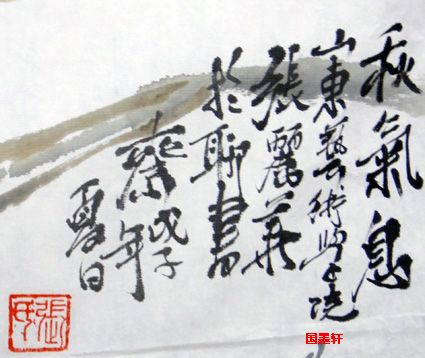 秋氣息
山東藝術學院
張麗華
於聊書
齋戊子年
夏日
張
国墨轩